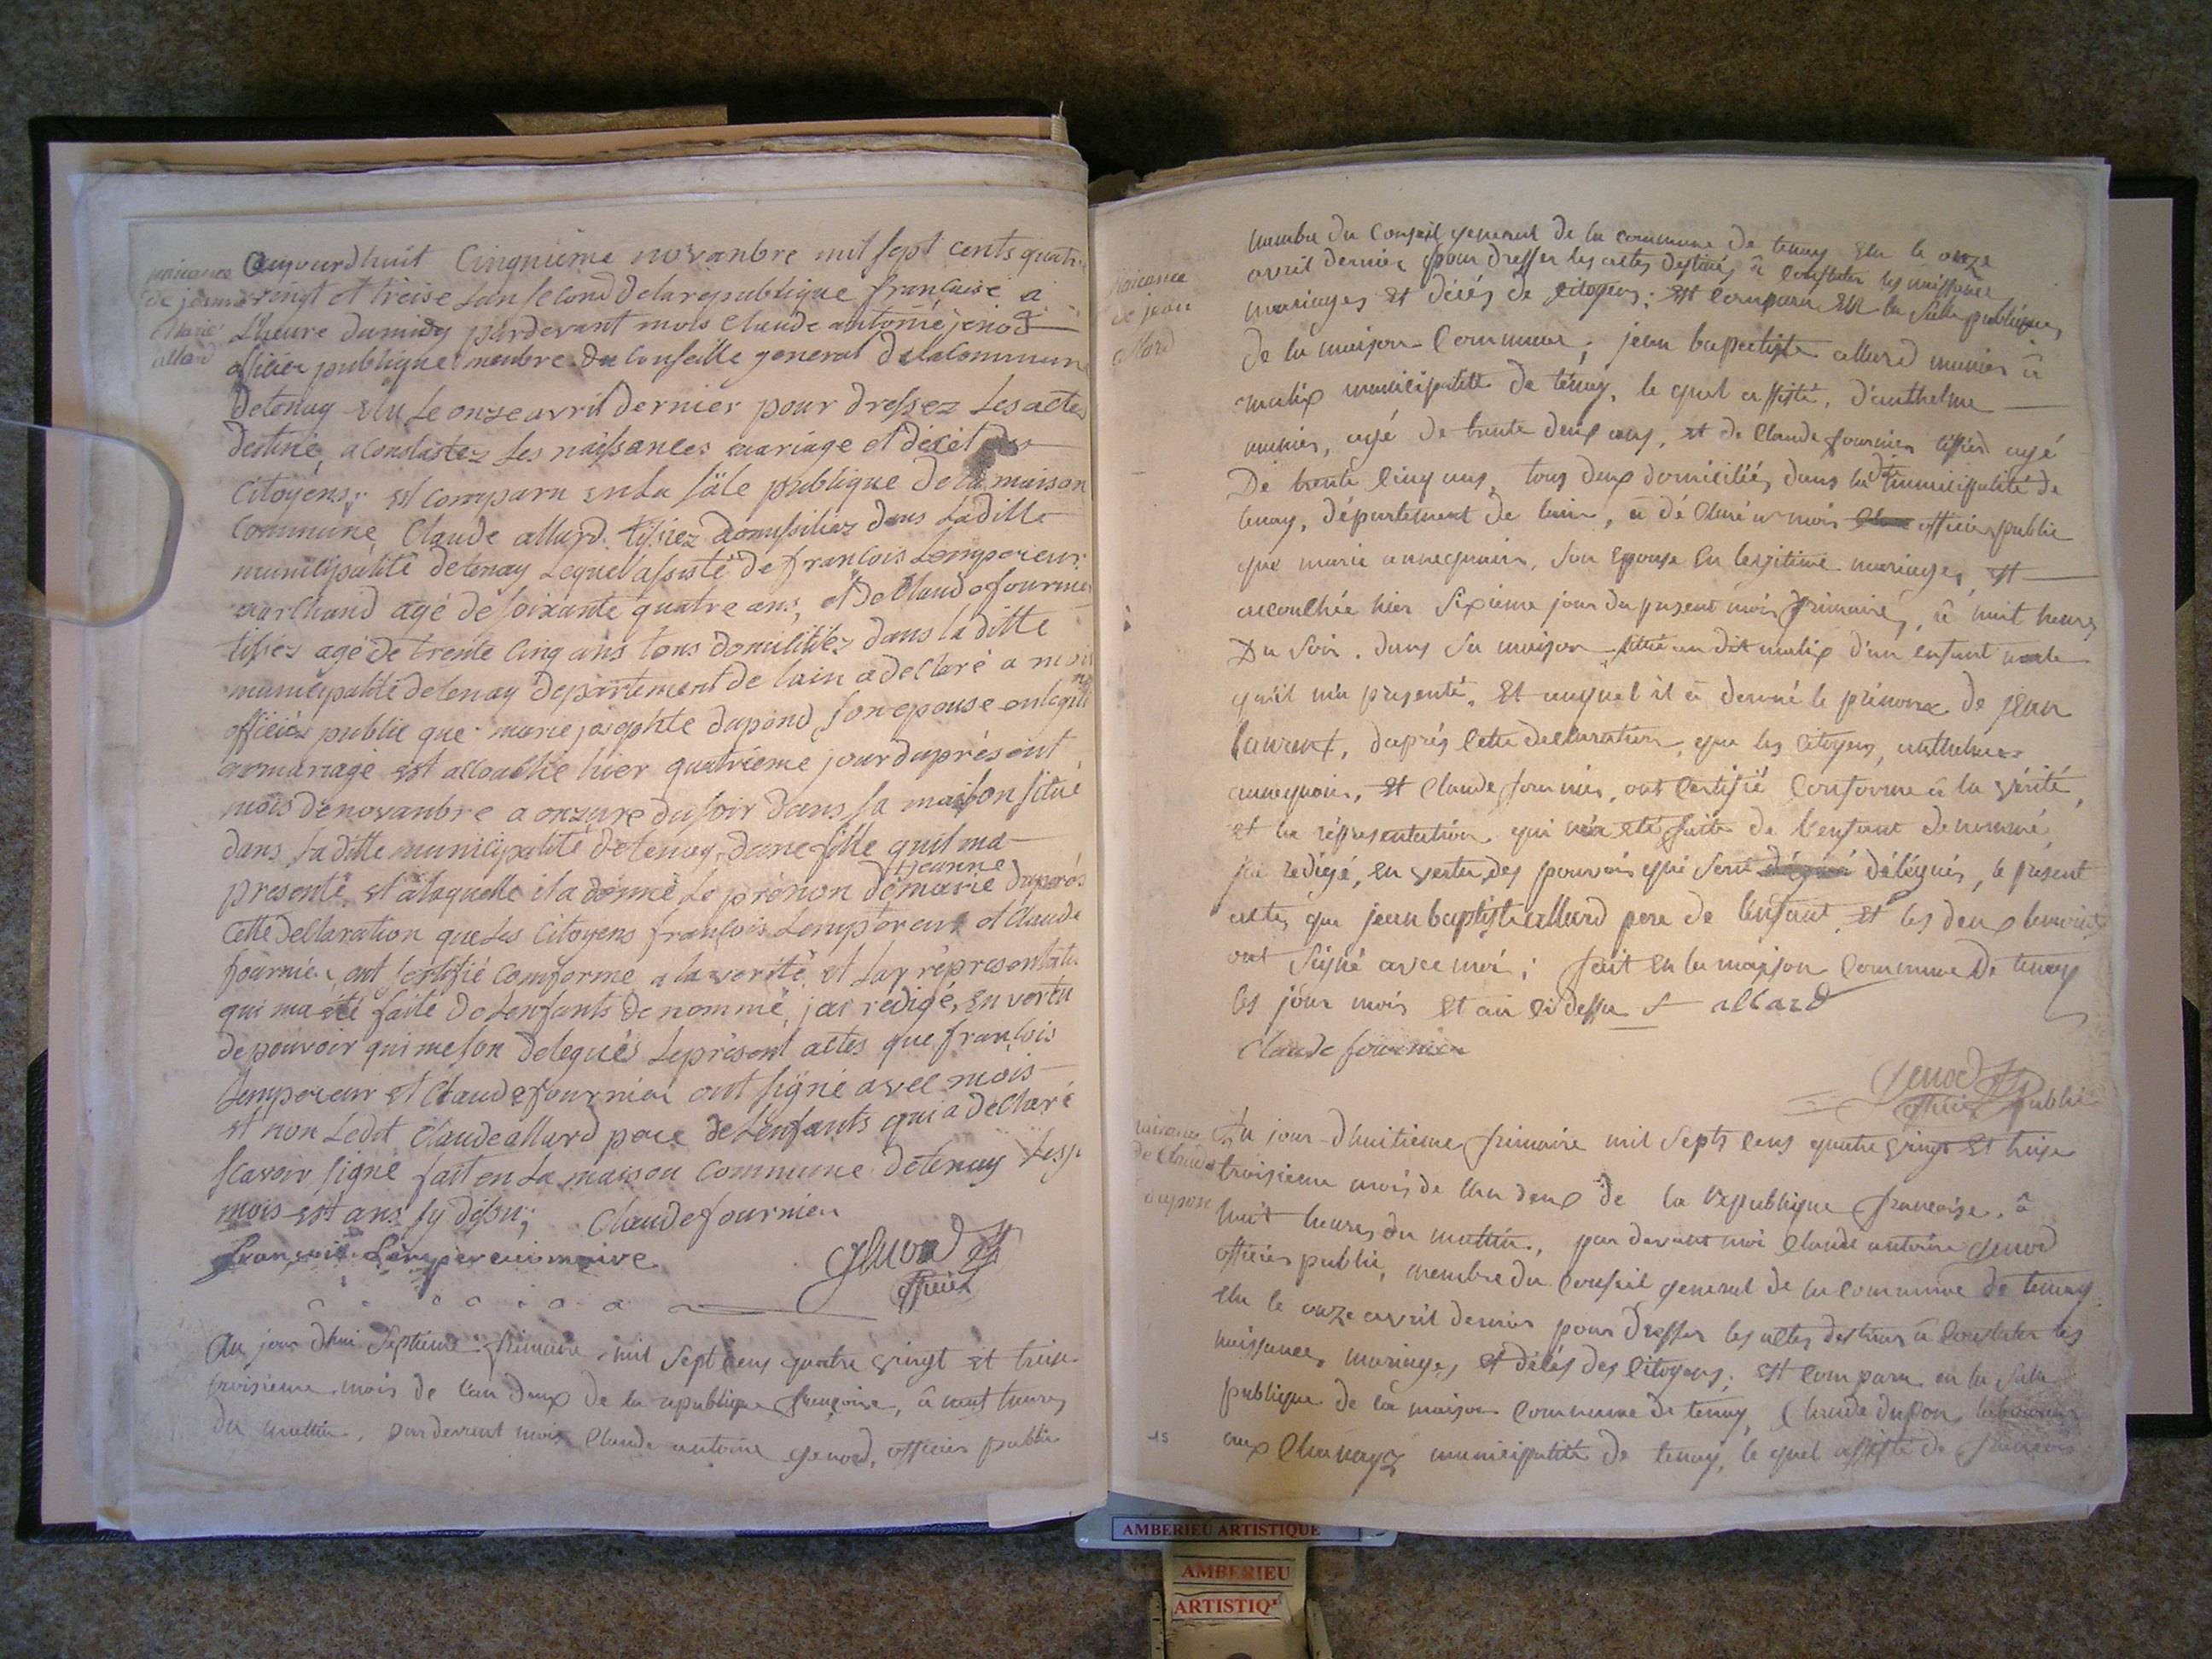 naicance
de jeanne
Marie
allard
Aujourdhuit Cinqnieme novanbre mil sept cents quatre
vingt et treise Lan second de la republique francaise a
Lheure dumidy pardevant mois Claude antoine jenod
officier publique menbre du Conseille general dela Commune
Detenay elu Le onze avril dernier pour dressez Les actes
destiné a Constastez Les naissances mariage et décèt des
Citoyens; est comparu en La sale publique De la maison
Commune, Claude allard tissiez domissiliez dans Laditte
municipalité detenay Lequel assisté de francois Lempereur
marchand agé de soixante quatre ans, et De Claude fournier
tissiez agé de trente cinq ans tous domiciliéz dans la ditte
municipalité detenay departement de lain a declaré a mois
officier public que marie josephte dupond son epouse enlegiti
mariage est accouchée hier quatrieme jour du présent
mois de novanbre a onzure du soir dans sa maison situé
dans Laditte municipalité detenay, dune fille quil ma
presenté, et alaquelle il a donné Le prénon de marie Jeanne daprès
Cette declaration que Les Citoyens francois Lempereur et Claude
fournier ont certifié comforme a la verité et Lay représentation
qui ma eté faite de Lenfants de nommé, jai redigé, en vertu
de pouvoir qui me son delegués Le présent actes que francois
Lempereur et Claude fournier ont signé avec mois
et non Ledit Claude allard pere de Lenfants qui a declaré
scavoir signé fait en La maison commune detenay
mois est ans sy dessu; Claude fournier
francois Lempereur maire
Genod
officier
Au jour dhui septieme frimaire mil sept cens quatre vingt et treize
troisieme mois de l'an deux de la republique françoise, à neuf heures
du mattin, par devant mois Claude antoine Genod, officier public
Naicance
de jean
allard
membre du Conseil general de la commune de tenay elu le onze
avril dernier pour dresser les actes destinés à constater les naissance
mariages et décés de citoyens; est comparu en la salle publique
de la maison Commune; jean baptiste allard munier à
malix municipalitté de tenay, le quel assisté, d'anthelme
munier, agé de trente deux ans, et de Claude fournier tissier agé
De trente cinq ans, tous deux domiciliés, dans la dte municipalité de
tenay, département de lain, à déclaré a mois officier public
que marie annequain, son epouse en legitime mariage, est
accouchée hier sixieme jour du present mois frimaire, à huit heures
Du soir, dans sa maison située au dit malix d'un enfant male
qu'il m'a presenté, et auquel il à donné le prénom de jean
laurent, daprés cette declaration, que les citoyens, anthelme
annequain, et Claude fournier, ont certifié conforme à la vérité,
et la réppresentation qui m'a eté faite de l'enfant denommé
jai redigé, en vertu des pouvoirs qui sont délégués, le présent
actes, que jean baptiste allard pere de l'enfant et les deux temoins
ont signé avec moi; fait en la maison commune De tenay
les jour mois et an ci dessu allard
Claude fournier
Genod
officier public
naicance
de Claude
dupon
Au jour dhuitieme frimaire mil Septs cens quatre vingt et treize
troisieme mois de l'an deux de la republique françoise, à
huit heures du mattin, par devant moi Claude antoine Genod
officier public, membre du Conseil general de la commune de tenay
elu le onze avril dernier pour dresser les actes destinés à constater les
naissances, mariages et décés des citoyens; est comparu en la salle
publique de la maison commune de tenay, Claude dupon laboureur
aux Chanayz municipalitté de tenay, le quel assisté de francois
15
AMBERIEU ARTISTIQUE
AMBERIEU
ARTISTIQ